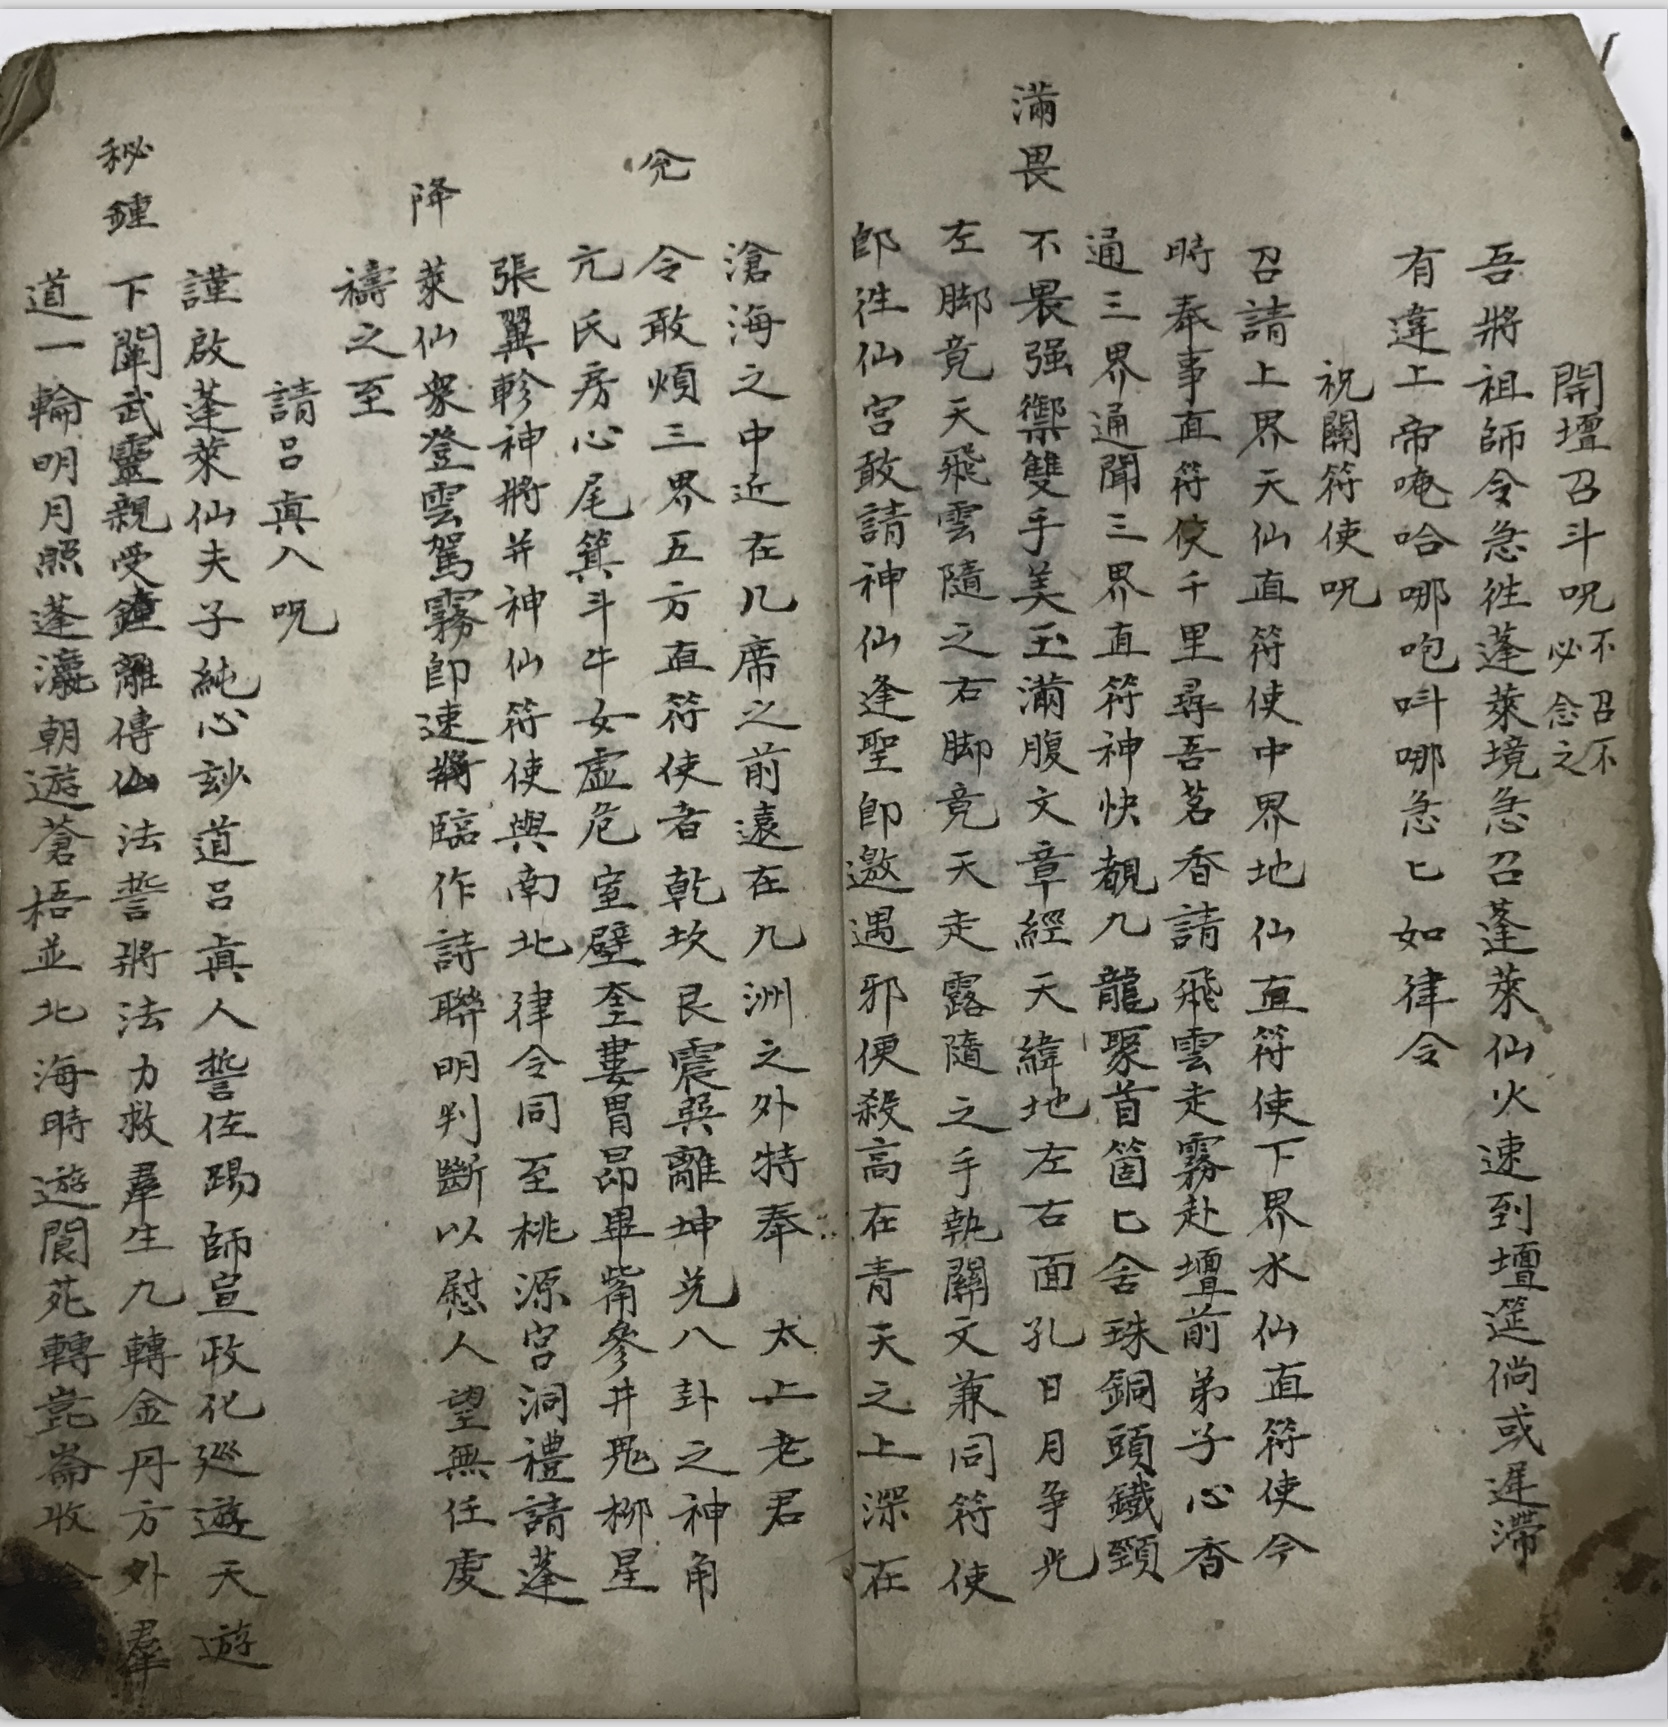 開壇召斗呪 不召不必念之
吾將祖師令急徃蓬萊境急召蓬萊仙火速到壇筵倘或遲滯
有違上帝唵哈哪咆呌哪急匕如律令
祝關符使呪
召請上界天仙直符使中界地仙直符使下界水仙直符使今
時奉事直符使千里尋吾茗香請飛雲走霧赴壇前弟子心香
通三界通聞三界直符神快覩九龍聚首箇匕舍珠銅頭鐵頸
滿畏
不畏强禦雙手美玉滿腹文章經天緯地左右面孔日月争光
左脚竟天飛雲隨之右脚竟天走露隨之手執關文兼同符使
卽徃仙宮敢請神仙逢聖卽邀遇邪便殺高在青天之上深在
滄海之中近在几席之前遠在九洲之外特奉 太上老君
兊
令敢煩三界五方直符使者乾坎艮震巽離坤兑八卦之神角
亢氐房心尾箕斗牛女虛危室壁奎婁胃昴畢觜參井鬼柳星
張翼軫神將并神仙符使與南北律令同至桃源宮洞禮請蓬
降
萊仙衆登雲駕霧卽速將臨作詩聯明判斷以慰人望無任虔
禱之至
請呂眞人呪
謹啟蓬萊仙夫子純心玅道呂眞人誓佐踢師宣政化巡遊天遊
秘鍾
下闡武靈親受鐘離傳仙法誓將法力救羣生九轉金丹方外羣
道一輪明月照蓬瀛朝遊蒼梧並北海時遊閬苑轉崑崙收